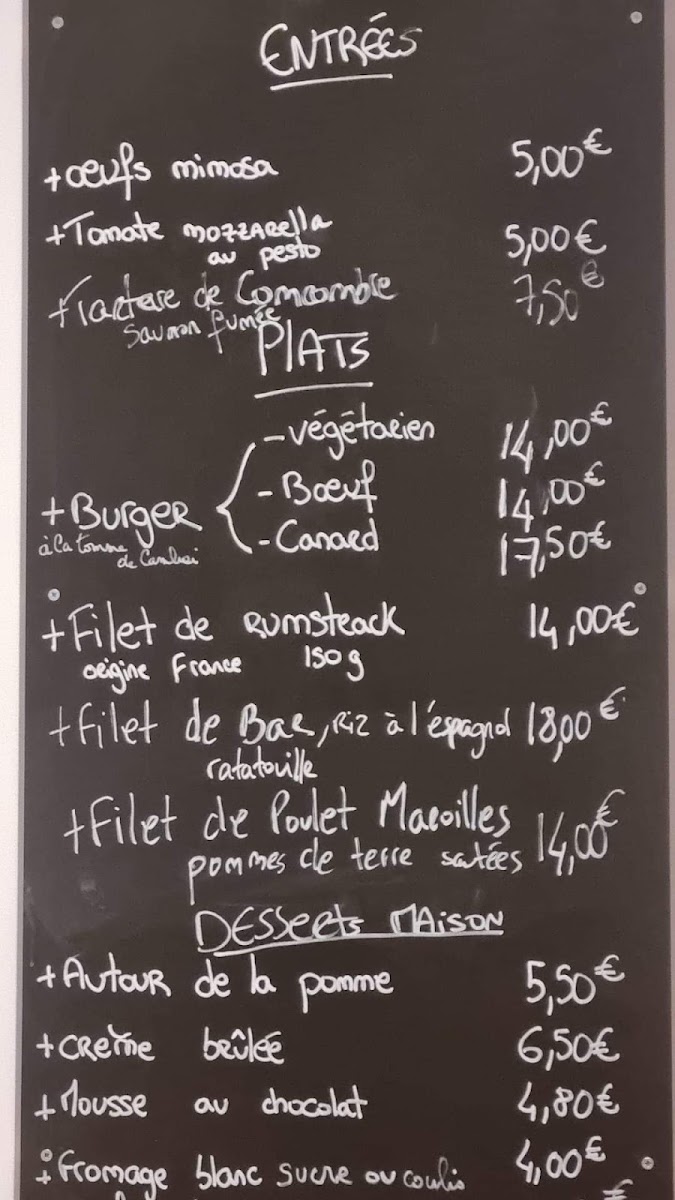 ENTRÉES
+ œufs mimosa 5,00€
+ Tomate mozzarella 5,00€
au pesto
+ Tartare de Concombre 7,50€
Saumon fumée
PLATS
- végétarien 14,00€
- Bœuf 14,00€
+ Burger
à la tomme
de Cambrai
- Canard 17,50€
+ Filet de Rumsteack 14,00€
origine France 150g
+ filet de Bar, riz à l'espagnol 18,00€
ratatouille
+ Filet de Poulet Maroilles 14,00€
pommes de terre satées
DESSERTS MAISON
+ Autour de la pomme 5,50€
+ crème brûlée 6,50€
+ Mousse au chocolat 4,80€
+ fromage blanc sucre ou coulis 4,00€
€